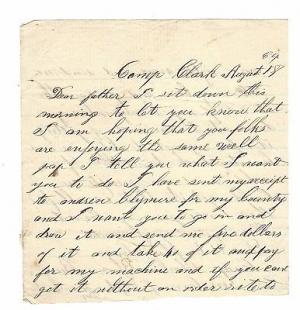 64
Camp Clark August 18
Dear father I sit down this
morning to let you know that
I am hoping that you folks
are enjoying the same well
pap I tell you what I want
you to do I have sent my receipt
to andrew Clymere for my County
and I want you to go in and
draw it and send me five dollars
of it and take 40 of it and pay
for my machine and if you can
get it without an order rite to